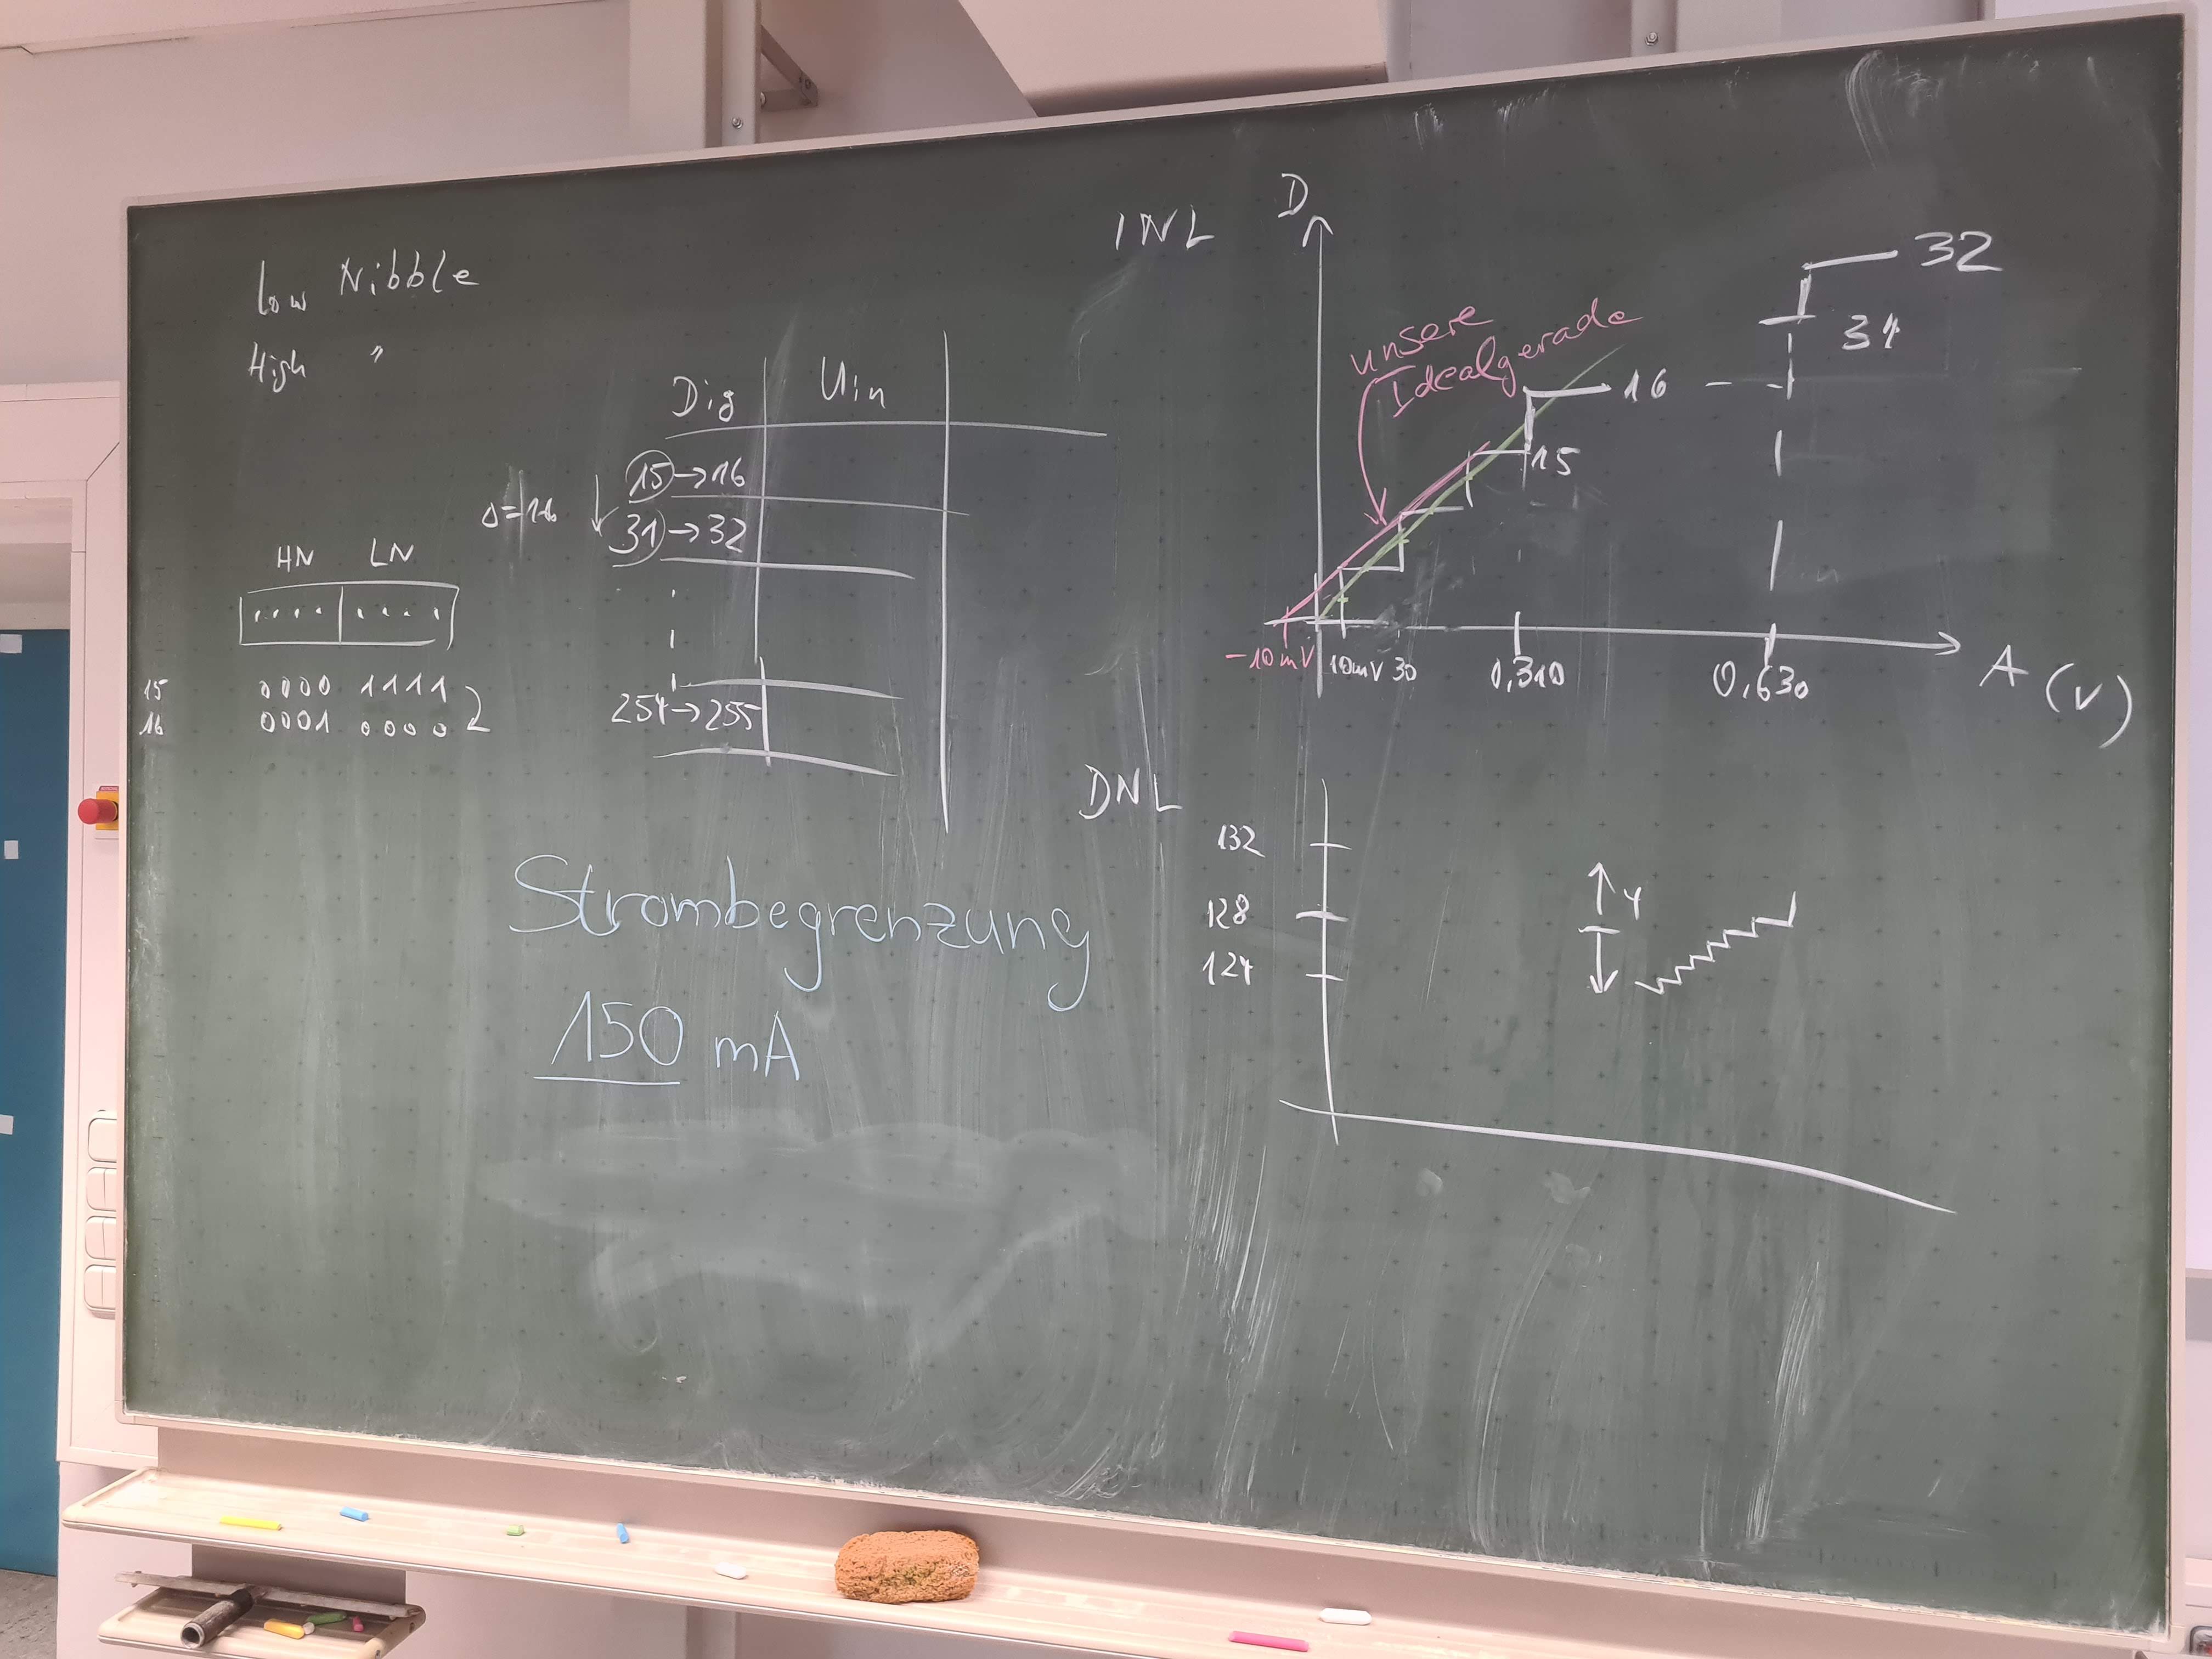 Low Nibble
High "
HN LN
15 0000 1111
16 0001 0000
Dig Uin
15→16
Δ=16
31→32
254→255
Strombegrenzung
150 mA
INL
D
unsere
Idealgerade
32
31
16
15
-10mV 10mV 30 0,310 0,630
A (V)
DNL
132
128
124
4